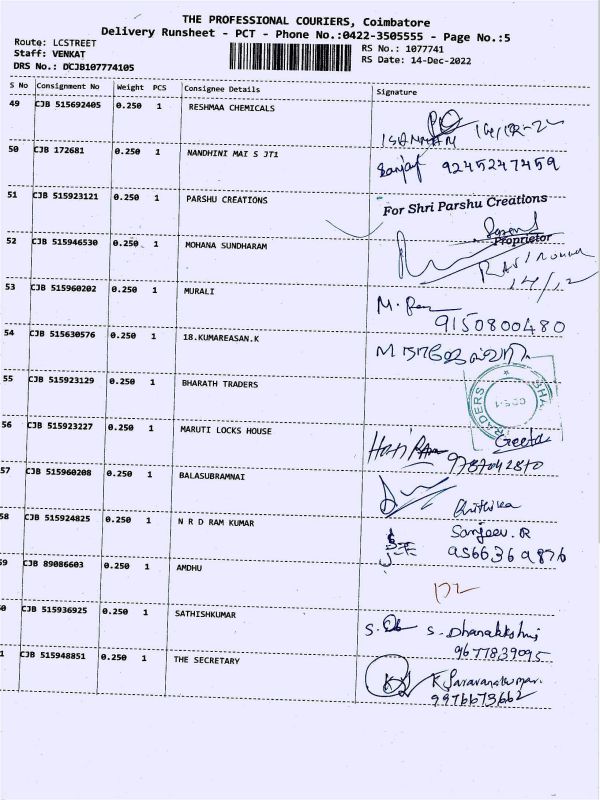 THE PROFESSIONAL COURIERS, Coimbatore
Delivery Runsheet - PCT - Phone No.:0422-3505555 - Page No.:5
Route: LCSTREET
Staff: VENKAT
DRS No.: DCJB107774105
RS No.: 1077741
RS Date: 14-Dec-2022
S No Consignment No Weight PCS Consignee Details Signature
49 CJB 515692405 0.250 1 RESHMAA CHEMICALS
50 CJB 172681 0.250 1 NANDHINI MAI S JT1
Sanjay 9245247459
51 CJB 515923121 0.250 1 PARSHU CREATIONS
For Shri Parshu Creations
Proprietor
52 CJB 515946530 0.250 1 MOHANA SUNDHARAM
14/12
53 CJB 515960202 0.250 1 MURALI
9150800480
54 CJB 515630576 0.250 1 18.KUMAREASAN.K
55 CJB 515923129 0.250 1 BHARATH TRADERS
TRADERS
Geetha
56 CJB 515923227 0.250 1 MARUTI LOCKS HOUSE
9787042870
57 CJB 515960208 0.250 1 BALASUBRAMNAI
58 CJB 515924825 0.250 1 N R D RAM KUMAR
Sanjeev.R
9566369876
59 CJB 89086603 0.250 1 AMDHU
0 CJB 515936925 0.250 1 SATHISHKUMAR
S. Dhanalakshmi
9677839095
1 CJB 515948851 0.250 1 THE SECRETARY
K Saravanakumar.
9976673662